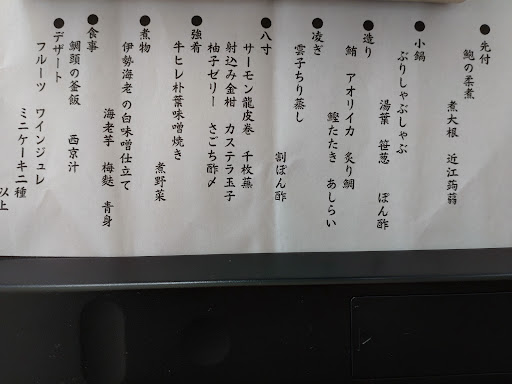 ●先付
鮑の柔煮
煮大根 近江蒟蒻
●小鍋
ぶりしゃぶしゃぶ
湯葉 笹葱 ぽん酢
●造り
鮪 アオリイカ 炙り鯛
鰹たたき あしらい
●凌ぎ
雲子ちり蒸し
割ぽん酢
●八寸
サーモン龍皮巻 千枚蕪
射込み金柑 カステラ玉子
柚子ゼリー さごち酢〆
●強肴
牛ヒレ朴葉味噌焼き
煮野菜
●煮物
伊勢海老の白味噌仕立て
海老芋 梅麩 青身
●食事
鯛頭の釜飯 西京汁
●デザート
フルーツ ワインジュレ
ミニケーキ二種
以上